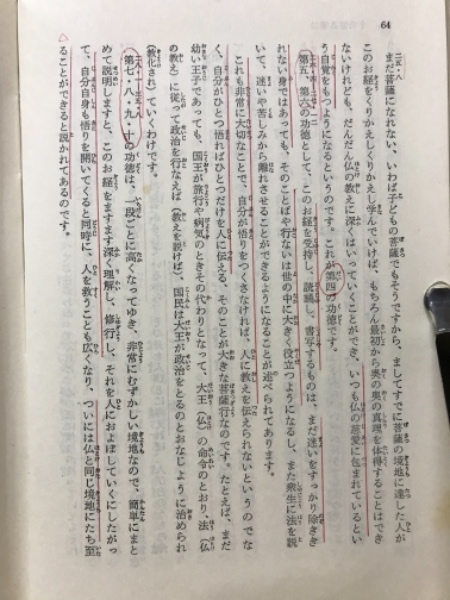 64
まだ菩薩になれない、いわば子どもの菩薩でもそうですから、ましてすでに菩薩の境地に達した人が
このお経をくりかえしくりかえし学んでいけば、もちろん最初から奥の奥の真理を体得することはでき
ないけれども、だんだん仏の教えに深くはいっていくことができ、いつも仏の慈愛に包まれているとい
う自覚をもつようになるというのです。これが第四の功徳です。
第五、第六の功徳として、このお経を受持し、読誦し、書写するものは、まだ迷いをすっかり除きき
れない身ではあっても、そのことばや行ないは世の中に大きく役立つようになるし、また衆生に法を説
いて、迷いや苦しみから離れさせることができるようになることが述べられてあります。
これも非常に大切なことで、自分が悟りをつくさなければ、人に教えを伝えられないというのでな
く、自分がひとつ悟ればひとつだけを人に伝える、そのことが大きな菩薩行なのです。たとえば、まだ
幼い王子であっても、国王が旅行や病気のときその代わりとなって、大王（仏）の命令のとおり、法（仏
の教え）に従って政治を行なえば（教えを説けば）、国民は大王が政治をとるのとおなじように治められ
（教化され）ていくわけです。
第七・八・九・十の功徳は、一段ごとに高くなってゆき、非常にむずかしい境地なので、簡単にまと
めて説明しますと、このお経をますます深く理解し、修行し、それを人におよぼしていくにしたがっ
て、自分自身も悟りを開いてくると同時に、人を救うことも広くなり、ついには仏と同じ境地にたち至
ることができると説かれてあるのです。